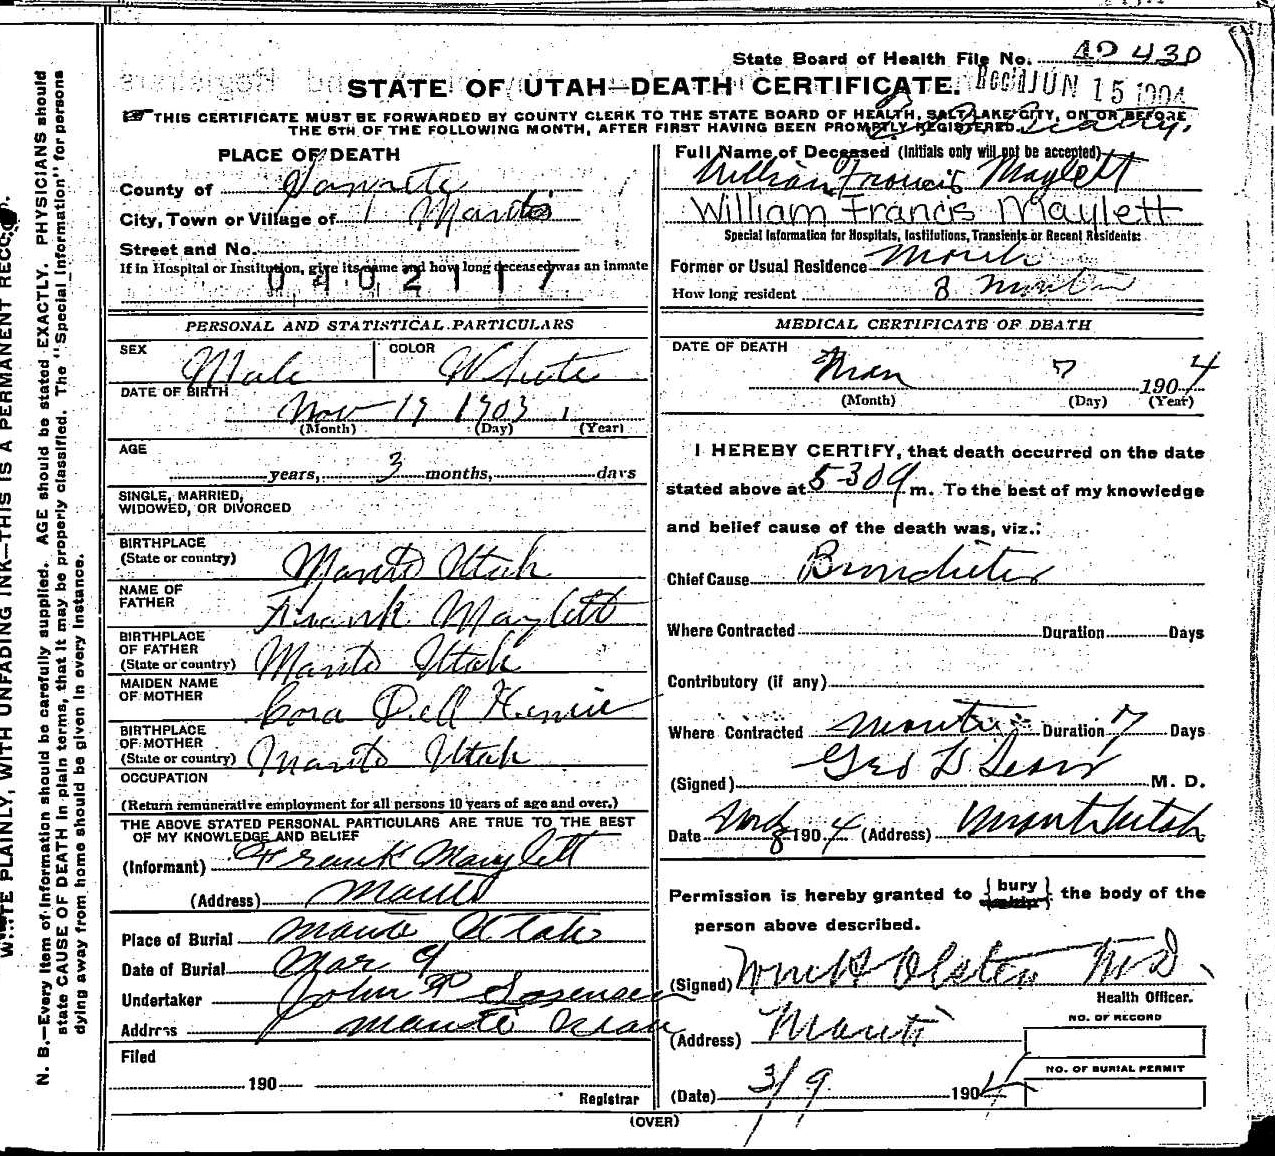 State Board of Health File No. 42430
STATE OF UTAH—DEATH CERTIFICATE.
Rec'd JUN 15 1904
THIS CERTIFICATE MUST BE FORWARDED BY COUNTY CLERK TO THE STATE BOARD OF HEALTH, SALT LAKE CITY, ON OR BEFORE
THE 5TH OF THE FOLLOWING MONTH, AFTER FIRST HAVING BEEN PROMPTLY REGISTERED.
PLACE OF DEATH
County of Sanpete
City, Town or Village of Manti
Street and No.
If in Hospital or Institution, give its name and how long deceased was an inmate
0402117
Full Name of Deceased (Initials only will not be accepted)
William Francis Maylett
William Francis Maylett
Special Information for Hospitals, Institutions, Transients or Recent Residents:
Former or Usual Residence Manti
How long resident 3 Months
PERSONAL AND STATISTICAL PARTICULARS
SEX Male COLOR White
DATE OF BIRTH
Nov 19 1903
(Month) (Day) (Year)
AGE
years, 3 months, days
SINGLE, MARRIED,
WIDOWED, OR DIVORCED
BIRTHPLACE
(State or country) Manti Utah
NAME OF
FATHER Frank Maylett
BIRTHPLACE
OF FATHER
(State or country) Manti Utah
MAIDEN NAME
OF MOTHER Cora Dell Henrie
BIRTHPLACE
OF MOTHER
(State or country) Manti Utah
OCCUPATION
(Return remunerative employment for all persons 10 years of age and over.)
THE ABOVE STATED PERSONAL PARTICULARS ARE TRUE TO THE BEST
OF MY KNOWLEDGE AND BELIEF
(Informant) Frank Maylett
(Address) Manti
Place of Burial Manti Utah
Date of Burial Mar 9
Undertaker John P Sorensen
Address Manti Utah
Filed
190
Registrar
MEDICAL CERTIFICATE OF DEATH
DATE OF DEATH
Mar 7 1904
(Month) (Day) (Year)
I HEREBY CERTIFY, that death occurred on the date
stated above at 5-30 a m. To the best of my knowledge
and belief cause of the death was, viz.:
Chief Cause Bronchitis
Where Contracted Duration Days
Contributory (if any)
Where Contracted Manti Duration 7 Days
(Signed) Geo L M. D.
Date Mar 8 1904 (Address) Manti Utah
Permission is hereby granted to {bury ship} the body of the
person above described.
(Signed) Wm H Olsten M D.
Health Officer.
(Address) Manti
NO. OF RECORD
NO. OF BURIAL PERMIT
(Date) 3/9 1904
(OVER)
N. B.—Every item of information should be carefully supplied. AGE should be stated EXACTLY. PHYSICIANS should
state CAUSE OF DEATH in plain terms, that it may be properly classified. The "Special Information" for persons
dying away from home should be given in every instance.
WRITE PLAINLY, WITH UNFADING INK—THIS IS A PERMANENT RECORD.